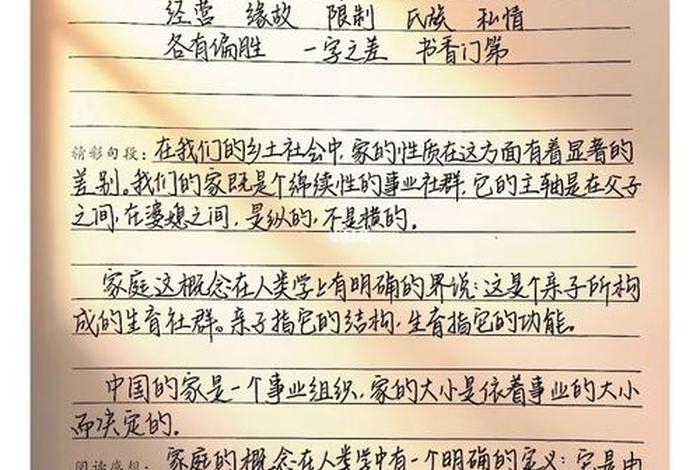 经营 缘故 限制 氏族 私情
各有偏胜 一字之差 书香门第
精彩句段：在我们的乡土社会中，家的性质在这方面有着显著的
差别。我们的家既是个绵续性的事业社群，它的主轴是在父子
之间，在婆媳之间，是纵的，不是横的。
家庭这概念在人类学上有明确的界说：这是个亲子所构
成的生育社群。亲子指它的结构，生育指它的功能。
中国的家是一个事业组织，家的大小是依着事业的大小
而决定的。
阅读感想：家庭的概念在人类学中有一个明确的定义：它是由